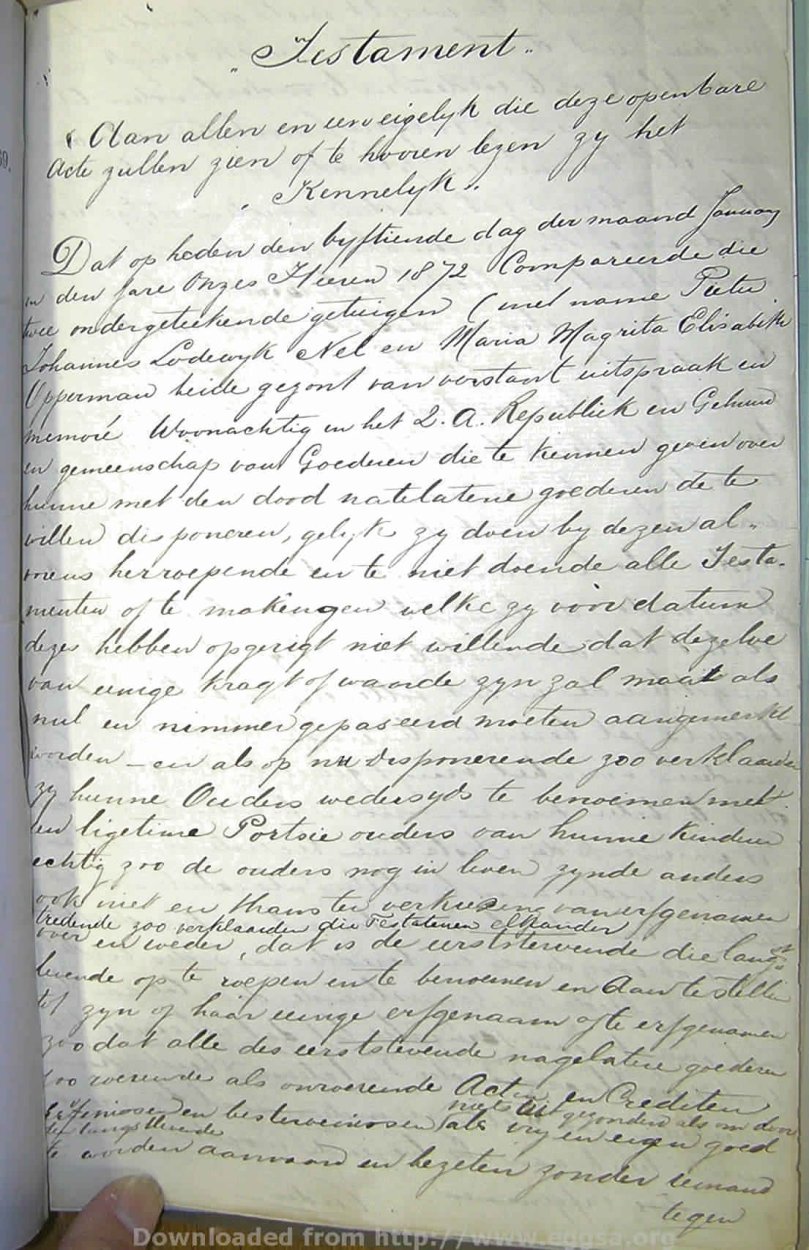 "Testament"
Aan allen en een eigelyk die deze openbare
Acte zullen zien of te hooren lezen zy het
Kennelyk.
Dat op heden den vyftiende dag der maand January
in den jare Onzes Heeren 1872 Compareerde die
twee ondergeteekende getuigen (met name Pieter
Johannes Lodewyk Nel en Maria Magrita Elisabeth
Opperman beide gezont van verstant uitspraak en
memoré Woonachtig in het Z. A. Republiek en Gehuud
in gemeenschap van Goederen die te kennen geven over
hunne met den dood natelatene goederen de te
willen disponeren, gelyk zy doen by dezen al-
vorens herroepende en te niet doende alle Testa-
menten of te makingen welke zy voor datum
dezes hebben opgerigt niet willende dat dezelve
van eenige kragt of waarde zyn zal maar als
nul en nimmer gepaseerd moeten aangemerkt
worden – en als op nu disponerende zoo verklaarden
zy hunne Ouders wedersyds te benoemen met
een ligetime Portsie ouders van hunne kinderen
echtig zoo de ouders nog in leven zynde anders
ook niet en thans ter verkiesing van erfgenamen
tredende zoo verklaarden die Testateuren elkander
over en weder, dat is de eerststervende die langst
levende op te roepen en te benoemen en Aan te stellen
tot zyn of haar eenige erfgenaam ofte erfgenamen
zoo dat alle des eerststervende nagelatene goederen
zoo roerende als onroerende Actien en Crediten
niets uitgezonderd als om door
den langstlevende als vry en eigen goed
te worden aanvaard en bezeten zonder iemand
tegen
Downloaded from http://www.eggsa.org